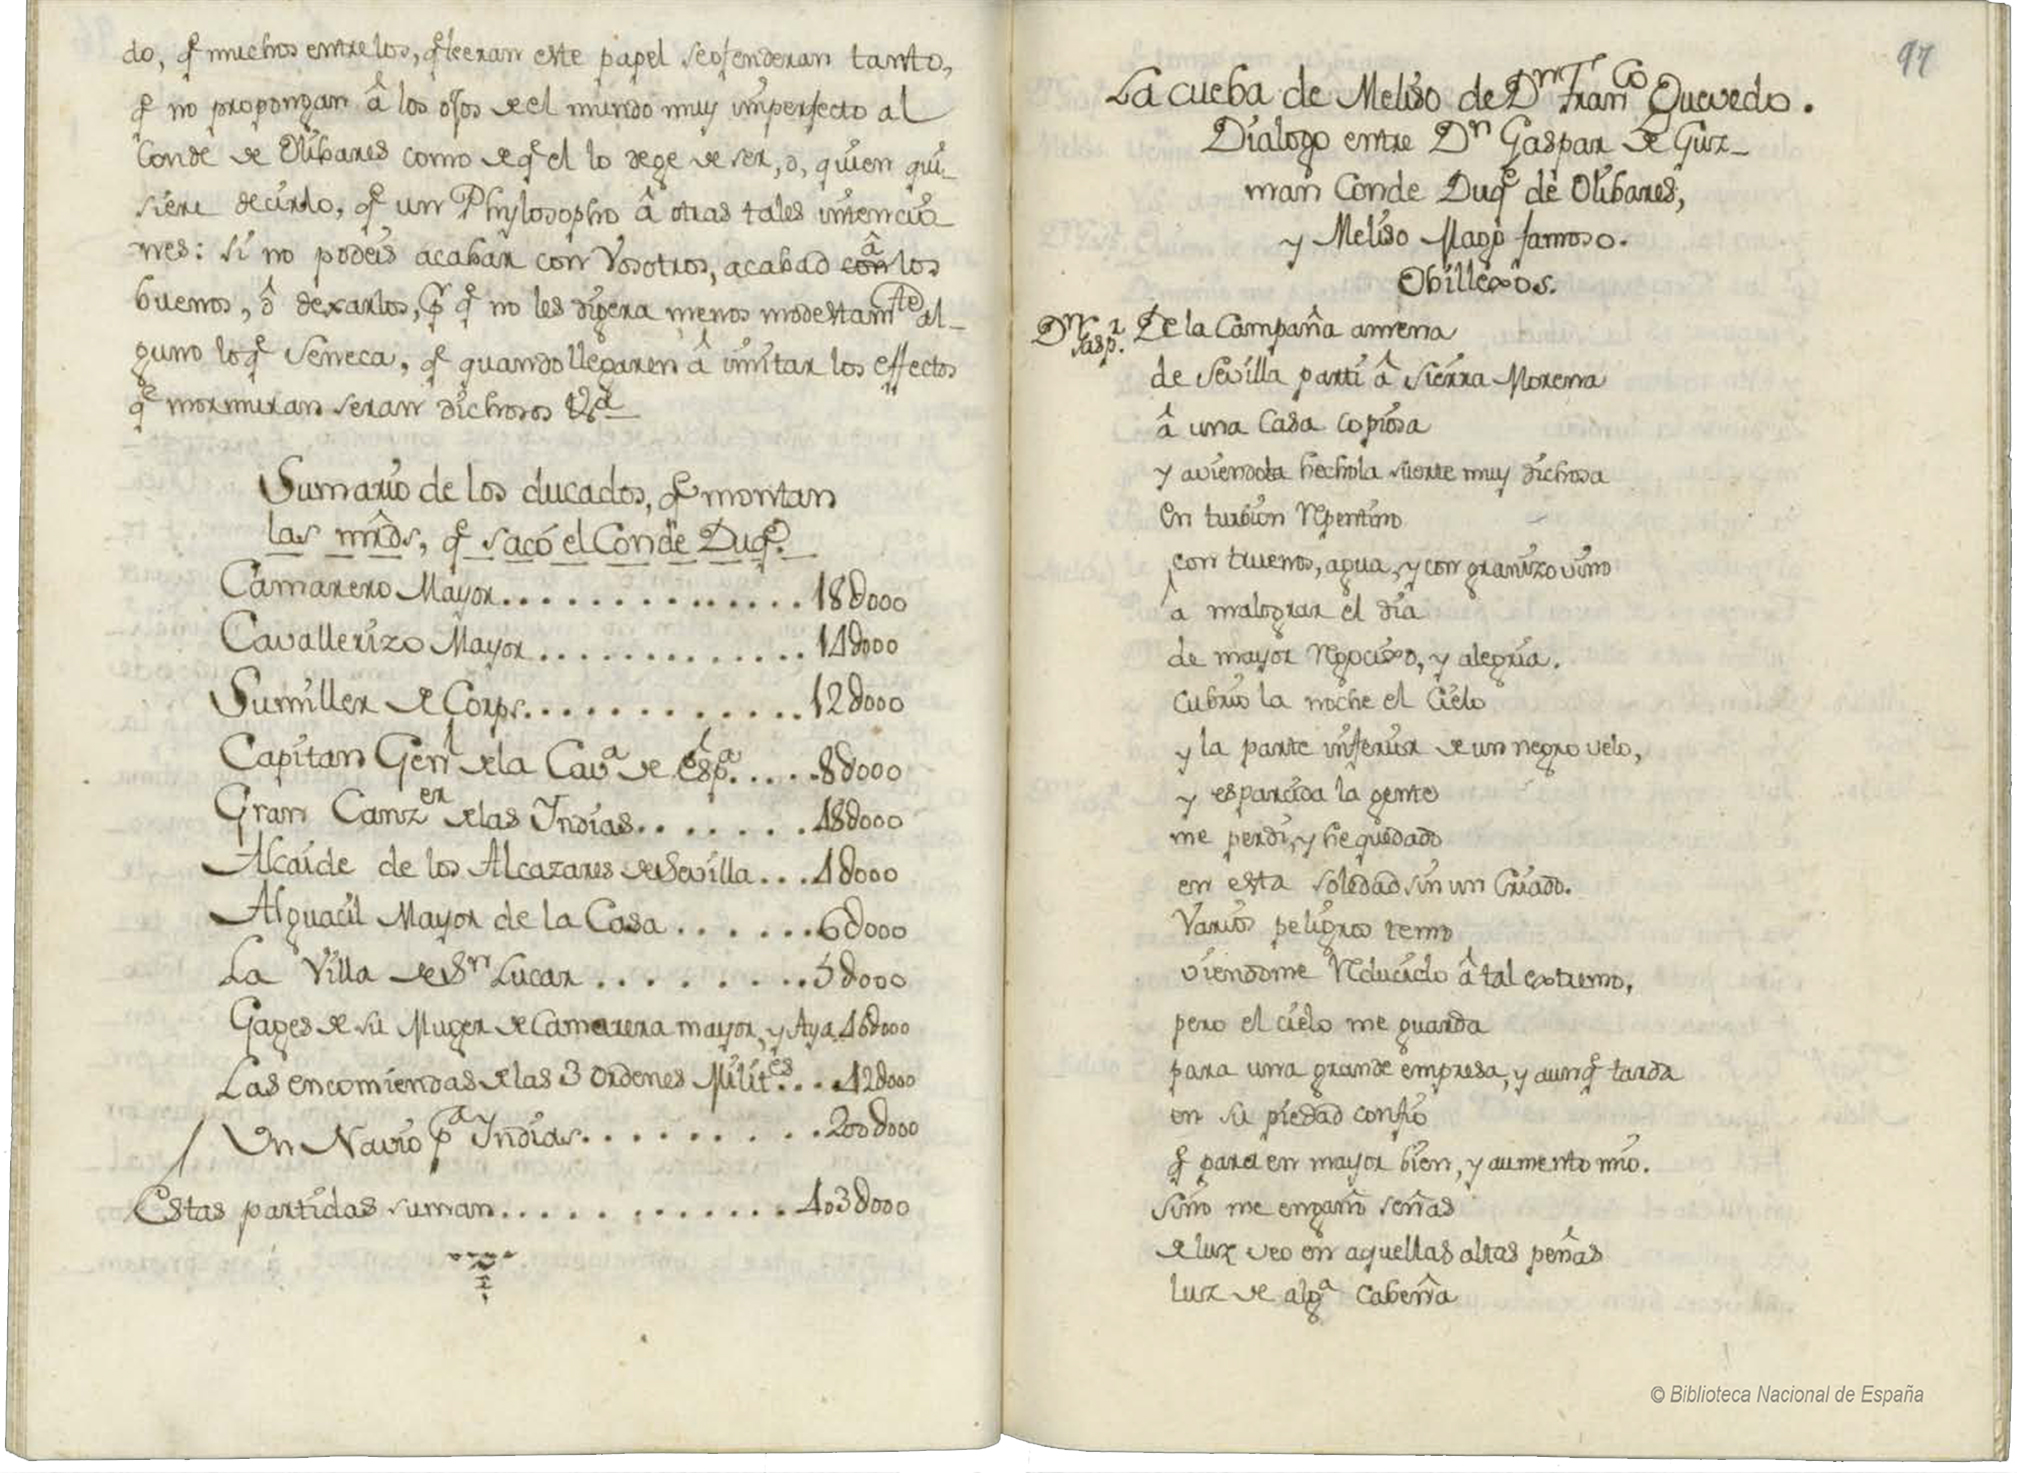 do, q̃ muchos entre los, q̃ leeran este papel se ofenderan tanto,
q̃ no propongan â los ojos de el mundo muy imperfecto al
Conde de Olibares como de q̃ el lo dege de ser, o, quien qui-
siere decirlo, q̃ un Phylosopho â otras tales intencio
nes: si no podeis acabar con Vosotros, acabad con â los
buenos, ô dexarlos, p.r q̃ no les digera menos modestam.te al-
guno lo q̃ Seneca, q̃ quando llegaren â imitar los effectos
q̃ mormuran seran dichosos &.a
Sumario de los ducados, q̃ montan
las mrds, q̃ sacó el Conde Duq.e
Camarero Mayor.............. 18U000
Cavallerizo Mayor............. 14U000
Sumiller de Corps............. 12U000
Capitan Gen.l de la Cav.a de Esp.a..... 8U000
Gran Canz.er de las Indias........ 48U000
Alcaide de los Alcazares de Sevilla... 4U000
Alguacil Mayor de la Casa....... 6U000
La Villa de S.n Lucar......... 5U000
Gages de su Muger de Camarera mayor, y Aya. 46U000
Las encomiendas de las 3 ordenes Milit.es.... 12U000
Un Navio p.a Indias.......... 200U000
Estas partidas suman............. 403U000
97
La cueba de Meliso de D.n Fran.co Quevedo.
Dialogo entre D.n Gaspar de Guz-
man Conde Duq.e de Olibares,
y Meliso Mago famoso.
Obillexos.
D.n Gasp.r De la Campaña amena
de Sevilla parti â Sierra Morena
â una Casa copiosa
y aviendola hechola suerte muy dichosa
En turbion Repentino
con truenos, agua, y con granizo vino
a malograr el dia
de mayor Regocixo, y alegria.
Cubrio la noche el Cielo
y la parte inferior de un negro velo,
y esparcida la gente
me perdi, y he quedado
en esta soledad sin un Criado.
Varios peligros temo
viendome Reducido â tal extremo,
pero el cielo me guarda
para una grande empresa, y aunq̃ tarda
en su piedad confio
q̃ pare en mayor bien, y aumento mio.
Sino me engaño señas
de luz veo en aquellas altas peñas
luz de alg.a Cabeña
© Biblioteca Nacional de España